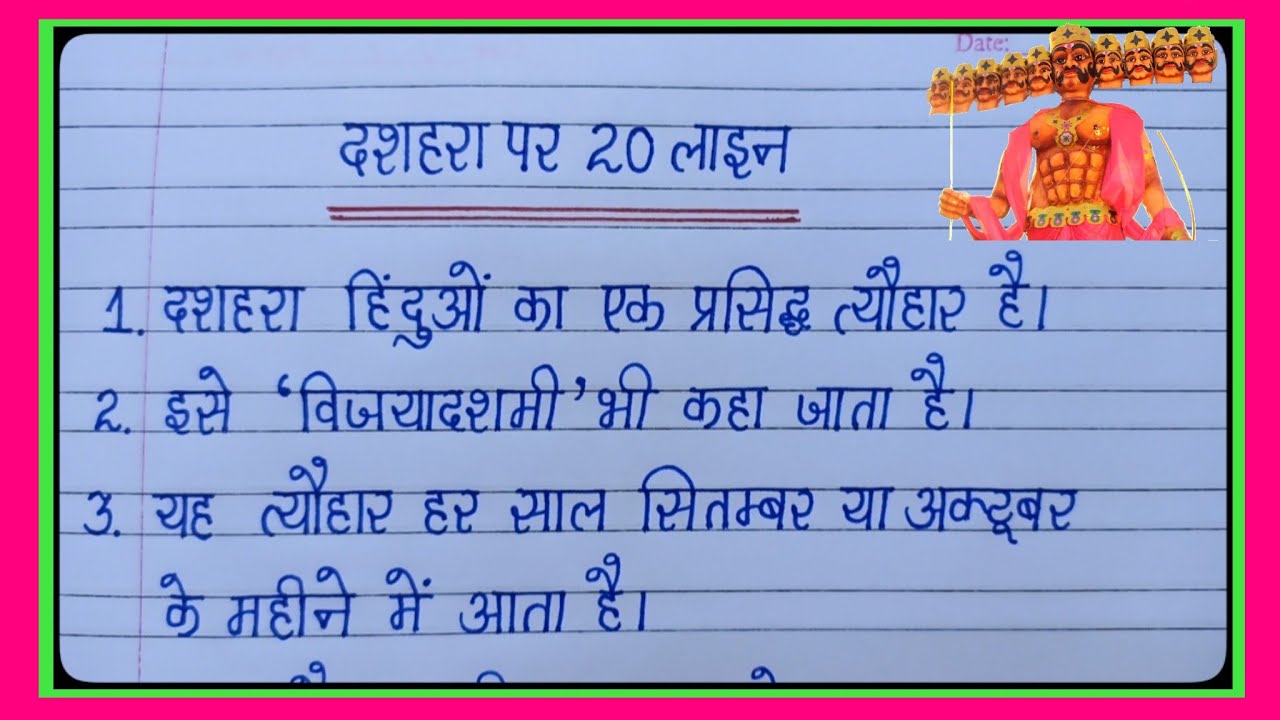 Date:
दशहरा पर 20 लाइन
1. दशहरा हिंदुओं का एक प्रसिद्ध त्यौहार है।
2. इसे ‘विजयादशमी’ भी कहा जाता है।
3. यह त्यौहार हर साल सितम्बर या अक्टूबर
के महीने में आता है।